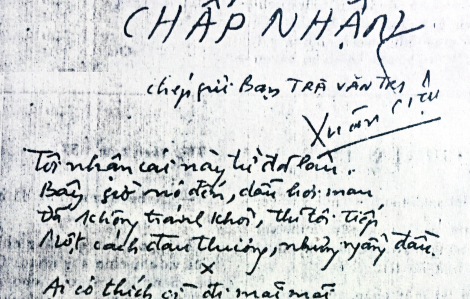 CHẤP NHẬN
chép gửi Bạn TRÀ VĂN
XUÂN DIỆU
Tôi nhận cái này từ đã lâu.
Bây giờ nó đến, dẫu hơi mau
Đã không tránh khỏi, thì tôi tiếp
Một cách đau thương, nhưng ngẩng đầu.
x
Ai có thích gì đi mất mát